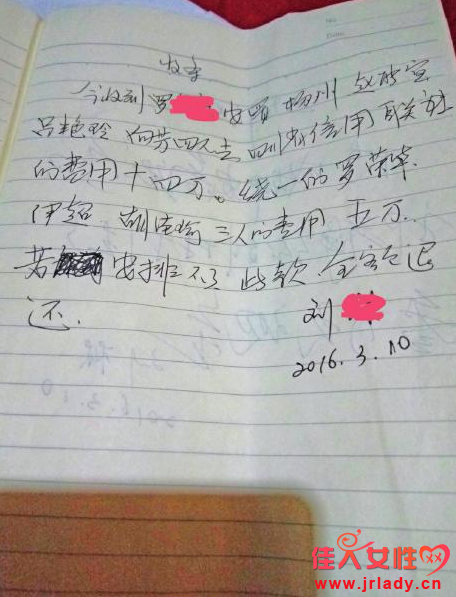 No.
Date.
收条
今收到罗 安 杨州 赵
吕艳玲 四人去四川省信用联社
的费用十四万。统一的罗荣华
伊超 胡 三人的费用五万.
若 安排不了此款.全额退
还.
刘
2016.3.10
佳人女性
www.jrlady.cn